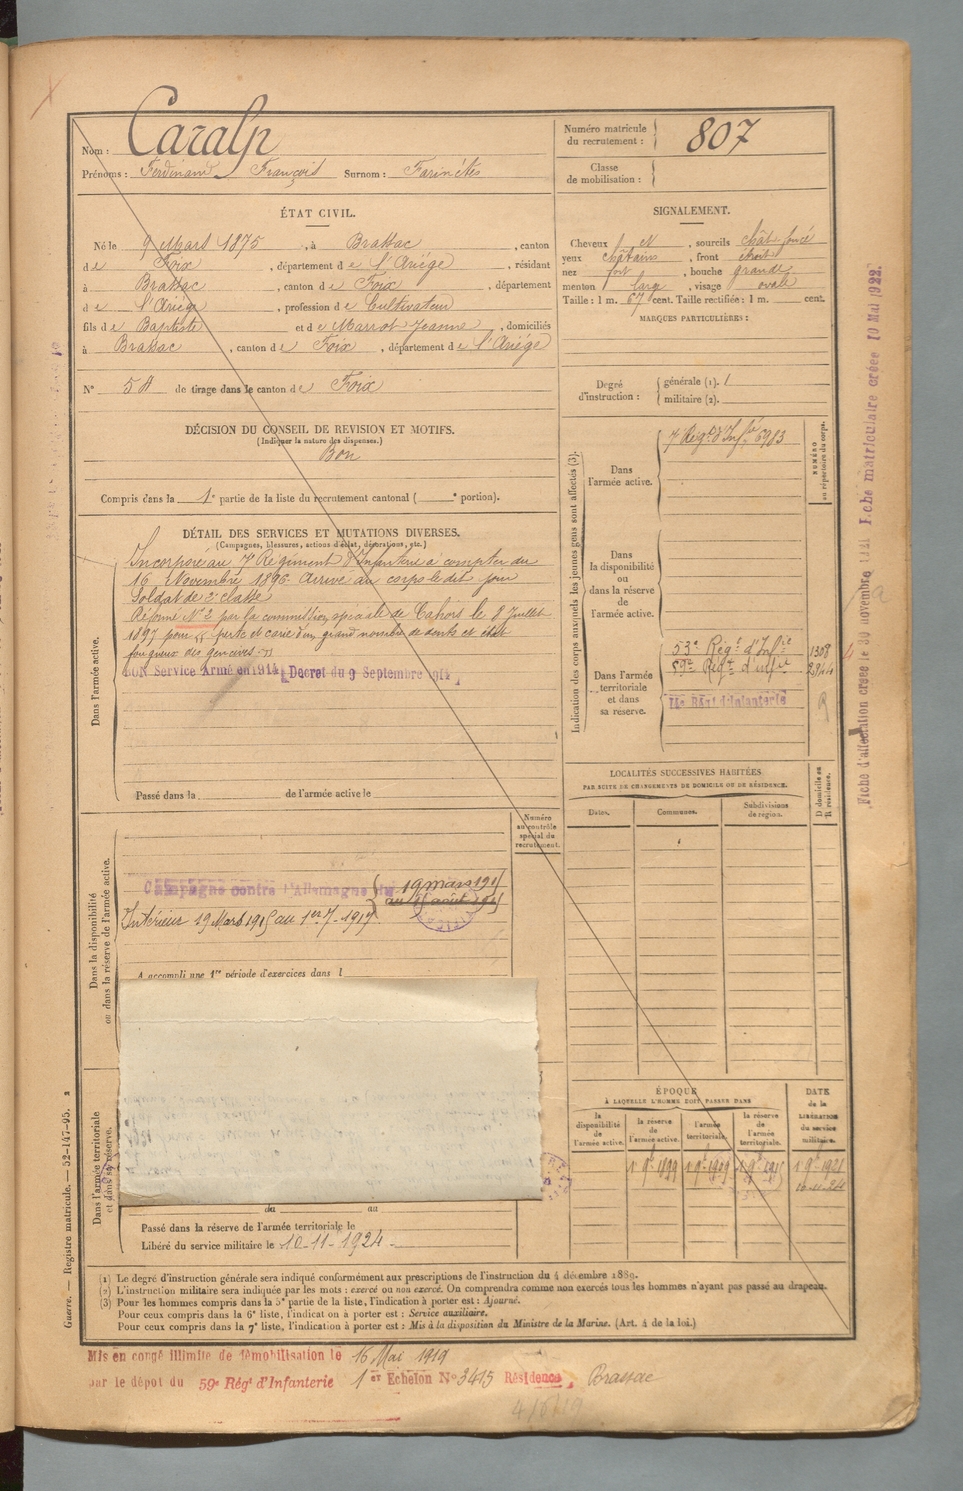 Nom : Caralp
Prénoms : Ferdinand François Surnom : Farinétes
ÉTAT CIVIL.
Né le 9 Mars 1875, à Brassac, canton
de Foix, département de l'Ariège, résidant
à Brassac, canton de Foix, département
de l'Ariège, profession de Cultivateur
fils de Baptiste et de Marrot Jeanne, domiciliés
à Brassac, canton de Foix, département de l'Ariège
N° 54 de tirage dans le canton de Foix
DÉCISION DU CONSEIL DE REVISION ET MOTIFS.
(Indiquer la nature des dispenses.)
Bon
Compris dans la 1e partie de la liste du recrutement cantonal ( e portion).
DÉTAIL DES SERVICES ET MUTATIONS DIVERSES.
(Campagnes, blessures, actions d'éclat, décorations, etc.)
Dans l'armée active.
Incorporé au 7e Régiment d'Infanterie à compter du
16 Novembre 1896 arrivé au corps le dit jour
Soldat de 2e classe
Réformé N° 2 par la commission spéciale de Cahors le 8 Juillet
1897 pour perte et carie d'un grand nombre de dents et état
fongueux des gencives
BON Service Armé en 1914 Décret du 9 Septembre 1914
Passé dans la de l'armée active le
Numéro
au contrôle
spécial du
recrutement.
Dans la disponibilité
ou dans la réserve de l'armée active.
Campagne contre l'Allemagne du 19 mars 1915
Intérieur 19 Mars 1915 au 1er-7-1917
A accompli une 1re période d'exercices dans l
Dans l'armée territoriale
et dans sa réserve.
du au
Passé dans la réserve de l'armée territoriale le
Libéré du service militaire le 10-11-1924
Numéro matricule
du recrutement : 807
Classe
de mobilisation :
SIGNALEMENT.
Cheveux et, sourcils chât. foncé
yeux châtains, front étroit
nez fort, bouche grande
menton large, visage ovale
Taille : 1 m. 67 cent. Taille rectifiée : 1 m. cent.
MARQUES PARTICULIÈRES :
Degré
d'instruction :
générale (1). 1
militaire (2).
Indication des corps auxquels les jeunes gens sont affectés (3).
NUMÉRO
au répertoire du corps.
Dans
l'armée active.
7e Régt d'Infie 6983
Dans
la disponibilité
ou
dans la réserve
de
l'armée active.
Dans l'armée
territoriale
et dans
sa réserve.
53e Régt d'Infie 1308
59e Régt d'Infie 2844
Régt d'Infanterie
LOCALITÉS SUCCESSIVES HABITÉES
PAR SUITE DE CHANGEMENTS DE DOMICILE OU DE RÉSIDENCE.
Dates.
Communes.
Subdivisions
de région.
D domicile ou
R résidence.
ÉPOQUE
À LAQUELLE L'HOMME DOIT PASSER DANS
DATE
de la
LIBÉRATION
du service
militaire.
la
disponibilité
de
l'armée active.
la réserve
de
l'armée active.
l'armée
territoriale.
la réserve
de
l'armée
territoriale.
1 9bre 1899
1 9bre 1909
1 9bre 1921
10-11-24
(1) Le degré d'instruction générale sera indiqué conformément aux prescriptions de l'instruction du 4 décembre 1889.
(2) L'instruction militaire sera indiquée par les mots : exercé ou non exercé. On comprendra comme non exercés tous les hommes n'ayant pas passé au drapeau.
(3) Pour les hommes compris dans la 5e partie de la liste, l'indication à porter est : Ajourné.
Pour ceux compris dans la 6e liste, l'indication à porter est : Service auxiliaire.
Pour ceux compris dans la 7e liste, l'indication à porter est : Mis à la disposition du Ministre de la Marine. (Art. 4 de la loi.)
Mis en congé illimité de démobilisation le 16 Mai 1919
par le dépôt du 59e Régt d'Infanterie 1er Echelon N° 3415 Résidence Brassac
Guerre. — Registre matricule. — 52-147-95.
Fiche d'affectation créée le 30 novembre 1921 Fiche matriculaire créée 10 Mai 1922.